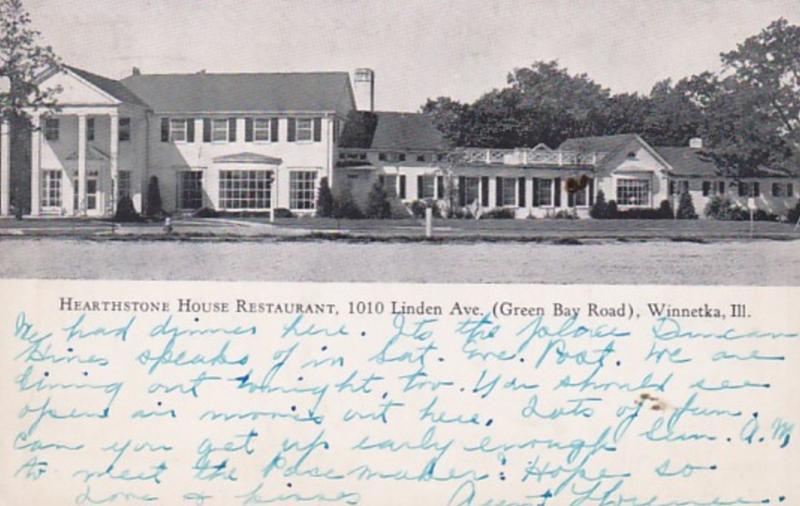 Hearthstone House Restaurant, 1010 Linden Ave. (Green Bay Road), Winnetka, Ill.
We had dinner here. Its the place Duncan
Hines speaks of in Sat. Eve. Post. We are
dining out tonight, too. You should see
open air movies out here. Lots of fun.
Can you get up early enough Sun. A.M,
to meet the Pacemaker? Hope so
Love & kisses Aunt Florence